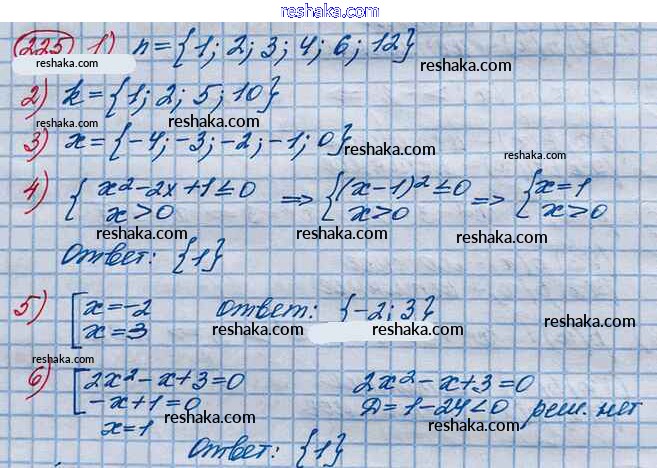 reshaka.com
225 1) n={1; 2; 3; 4; 6; 12}
reshaka.com reshaka.com
2) k={1; 2; 5; 10}
reshaka.com
3) x={-4; -3; -2; -1; 0}
reshaka.com reshaka.com
4) { x²-2x+1≤0 ⇒ { (x-1)²≤0 ⇒ { x=1
x>0 x>0 x>0
reshaka.com reshaka.com reshaka.com
Ответ: {1}
5) [ x=-2 Ответ: {-2; 3}
x=3
reshaka.com reshaka.com reshaka.com
reshaka.com
6) [ 2x²-x+3=0 2x²-x+3=0
-x+1=0 Д=1-24<0 реш. нет
reshaka.com reshaka.com
x=1
Ответ: {1}
reshaka.com